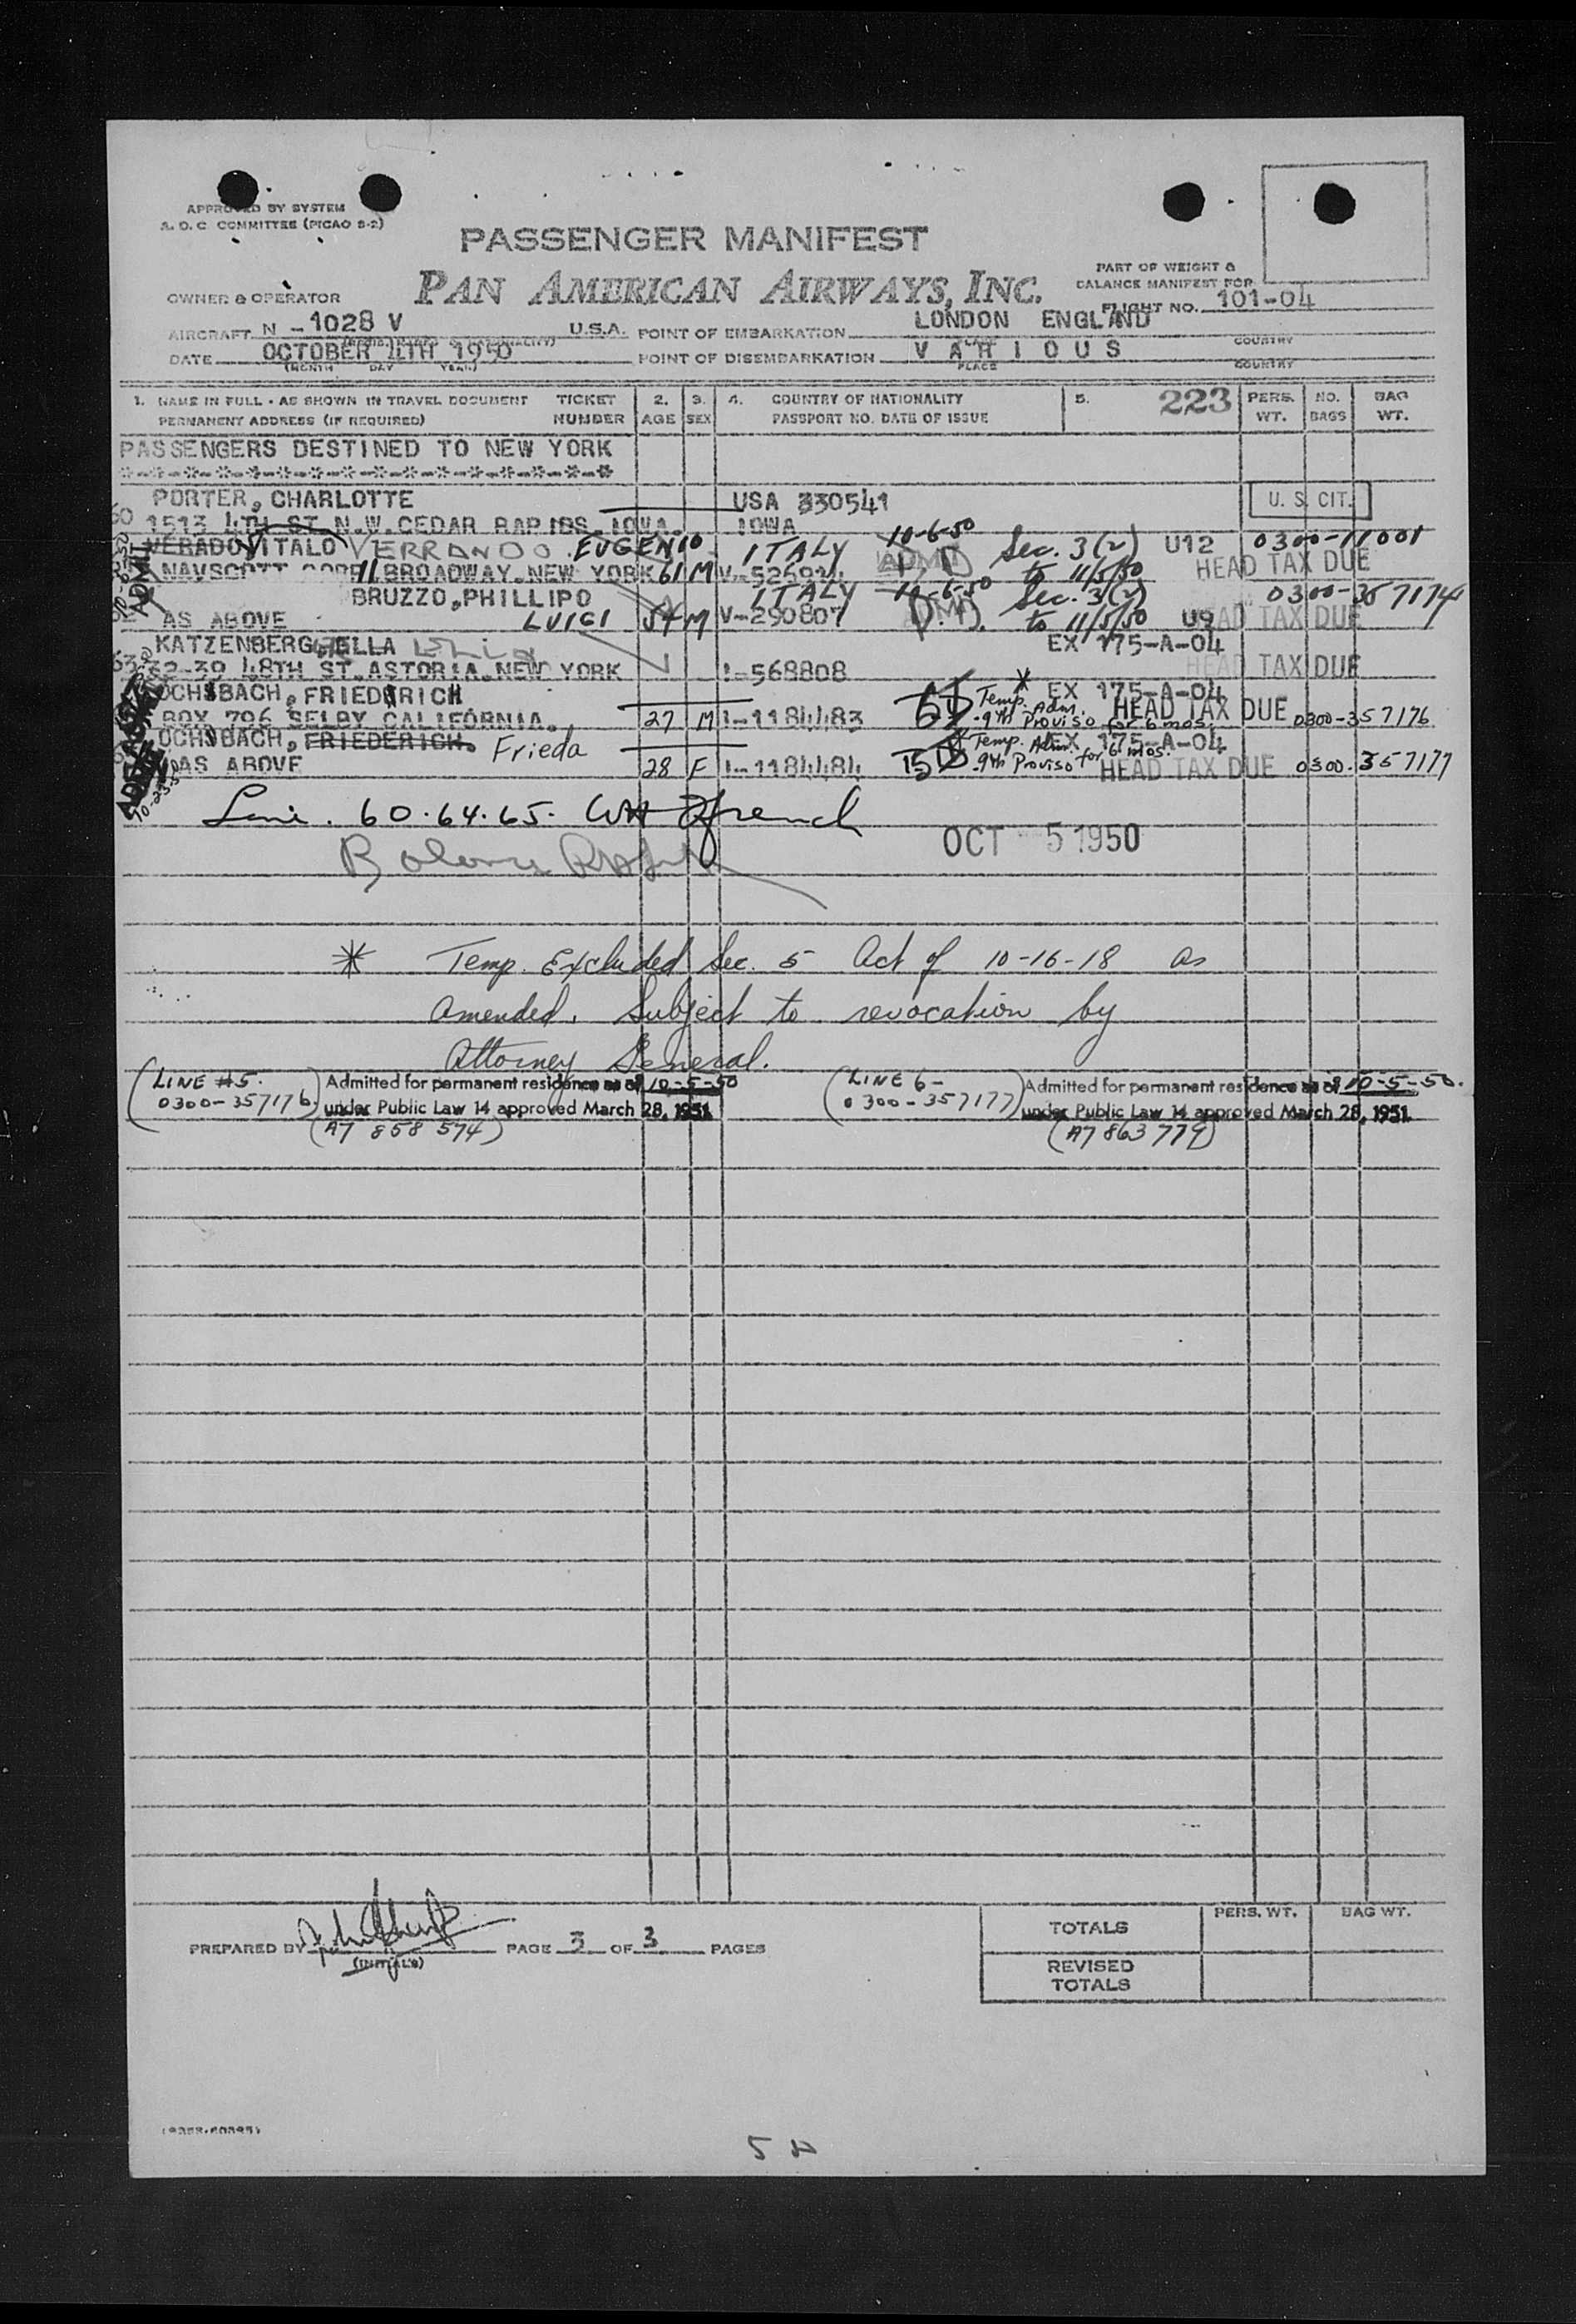 APPROVED BY SYSTEM
A. O. C. COMMITTEE (PICAO S-2)
PASSENGER MANIFEST
PAN AMERICAN AIRWAYS, INC.
PART OF WEIGHT &
BALANCE MANIFEST FOR
FLIGHT NO. 101-04
OWNER & OPERATOR
AIRCRAFT N -1028 V U.S.A. POINT OF EMBARKATION LONDON ENGLAND
COUNTRY
DATE OCTOBER 4TH 1950 POINT OF DISEMBARKATION VARIOUS
(MONTH DAY YEAR) PLACE COUNTRY
1. NAME IN FULL - AS SHOWN IN TRAVEL DOCUMENT TICKET 2. 3. 4. COUNTRY OF NATIONALITY 5. 223 PERS. NO. BAG
PERMANENT ADDRESS (IF REQUIRED) NUMBER AGE SEX PASSPORT NO. DATE OF ISSUE WT. BAGS WT.
PASSENGERS DESTINED TO NEW YORK
PORTER, CHARLOTTE USA 330541 U. S. CIT.
1513 4TH ST. N.W. CEDAR RAPIDS, IOWA. IOWA
VERADO VITALO VERRANDO EUGENIO ITALY 10-6-50 Sec. 3(2) U12 0300-11001
NAVSCOTT CORP 11 BROADWAY, NEW YORK 61 M to 11/5/50 HEAD TAX DUE
BRUZZO, PHILLIPO ITALY 10-6-50 Sec. 3(2) 0300-357174
AS ABOVE LUIGI 54 M V-290807 to 11/5/50 U9 HEAD TAX DUE
KATZENBERG, ELLA EX 175-A-04
32-39 48TH ST. ASTORIA, NEW YORK I-568808 HEAD TAX DUE
OCHSBACH, FRIEDRICH * Temp. Adm. EX 175-A-04
BOX 796 SELBY CALIFORNIA. 27 M I-1184483 9th Proviso for 6 mos. HEAD TAX DUE 0300-357176
OCHSBACH, FRIEDERICH. Frieda * Temp. Adm. EX 175-A-04
AS ABOVE 28 F I-1184484 9th Proviso for 6 mos. HEAD TAX DUE 0300-357177
60.64.65.
OCT 5 1950
* Temp. Excluded Sec. 5 Act of 10-16-18 as
amended. Subject to revocation by
Attorney General.
(LINE #5. Admitted for permanent residence as of 10-5-50 (LINE 6- Admitted for permanent residence as of 10-5-50.
0300-357176.) under Public Law 14 approved March 28, 1951. 0300-357177) under Public Law 14 approved March 28, 1951.
(A7 858 574) (A7 863 779)
PREPARED BY PAGE 3 OF 3 PAGES
(INITIALS)
PERS. WT. BAG WT.
TOTALS
REVISED
TOTALS